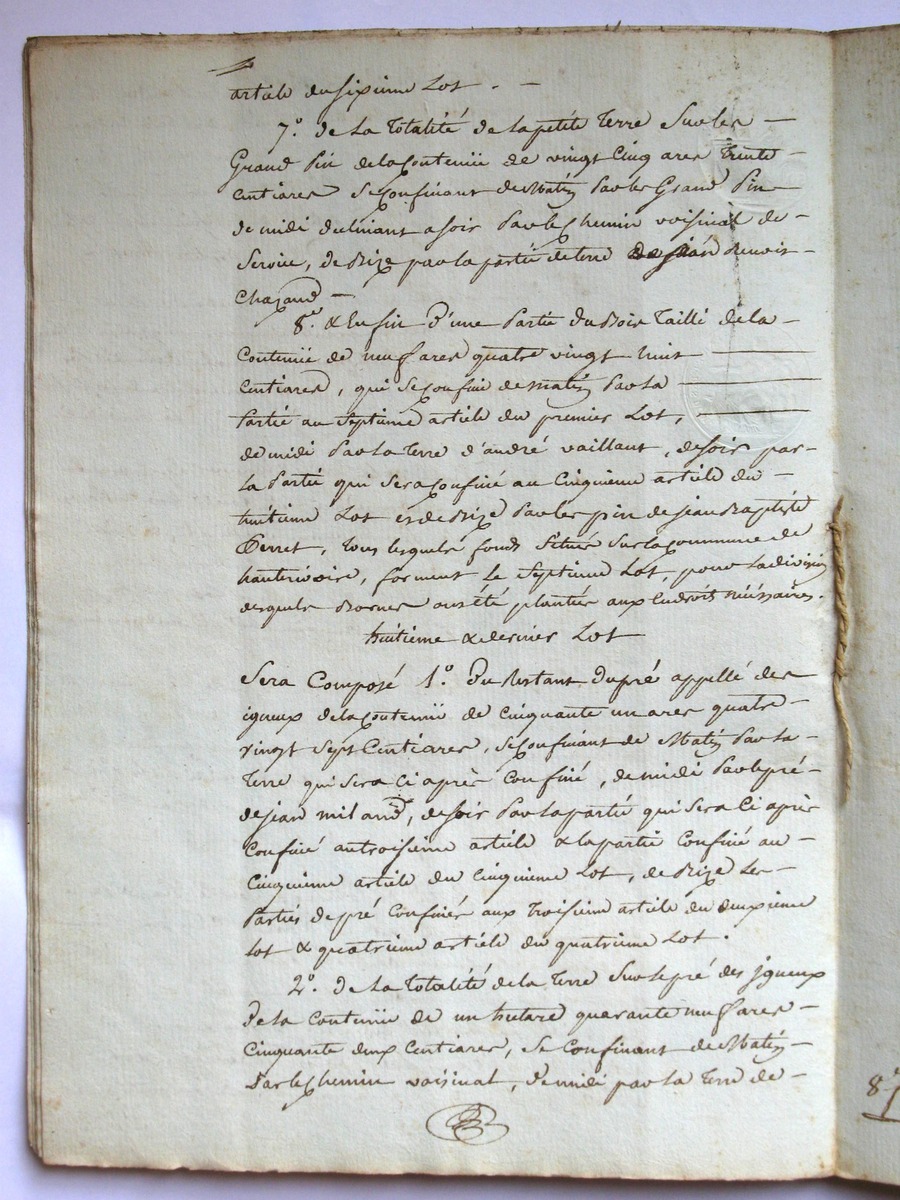 article du sixieme Lot. –
7.° de La Totalité de la petite Terre Sur les –
Grand Pin de la Contenüe de vingt Cinq ares Trente
Centiares Se Confinant de Matin Par les Grand Pin
de midi declinant a soir Par le Chemin voisinal de –
Servie, de Bize par la partie de terre de jean Benoit –
Chazaud –
8.° & Enfin d'une Partie du Bois Taillé de la –
Contenüe de neuf ares quatre vingt huit
Centiares, qui Se Confine de matin Par La
Partie au Septieme article du premier Lot,
de midi Par La Terre d'andré vaillant, de soir par
La Partie qui Sera Confiné au Cinquieme article du –
huitieme Lot et de Bize Par les pin de jean Baptiste
Perret, Tous lesquels fonds Situés Sur la Commune de
hauterivoire, forment Le Septieme Lot, pour La division
desquels Bornes ont été plantées aux Endroits nécéssaires.
huitieme & dernier Lot
Sera Composé 1.° Du Restant du pré appellé des
igneux de la Contenüe de Cinquante un ares quatre –
vingt Sept Centiares, se Confinant de Matin Par La –
Terre qui Sera Ci après Confiné, de midi Par le pré –
de jean miland, de soir Par La partie qui Sera Ci après
Confiné au troisieme article & la partie Confiné au –
Cinquieme article du Cinquieme Lot, de Bize Les –
Parties de pré Confinés aux Troisieme article du deuxieme
Lot & quatrieme article du quatrieme Lot.
2.° de La Totalité de la Terre Sur le pré des jgneux
De la Contenüe de un hectare quarante neuf ares –
Cinquante deux Centiares, Se Confinant de Matin –
Par le Chemin voisinal, de midi par La Terre de –
8.